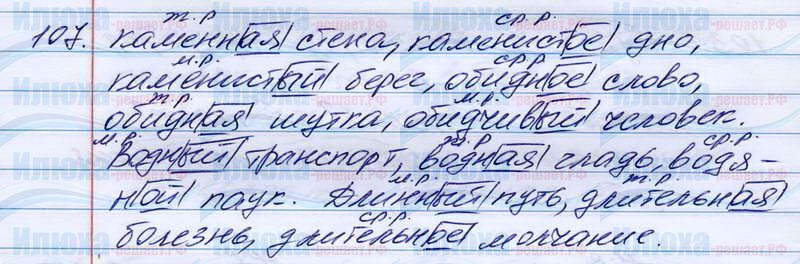 ж.р. ср.р.
107. каменная стена, каменистое дно,
м.р. ср.р.
каменистый берег, обидное слово,
ж.р. м.р.
обидная шутка, обидчивый человек.
м.р. ж.р. ср.р.
Водный транспорт, водная гладь, водя-
м.р. ж.р.
ной паук. Длинный путь, длительная
ср.р.
болезнь, длительное молчание.